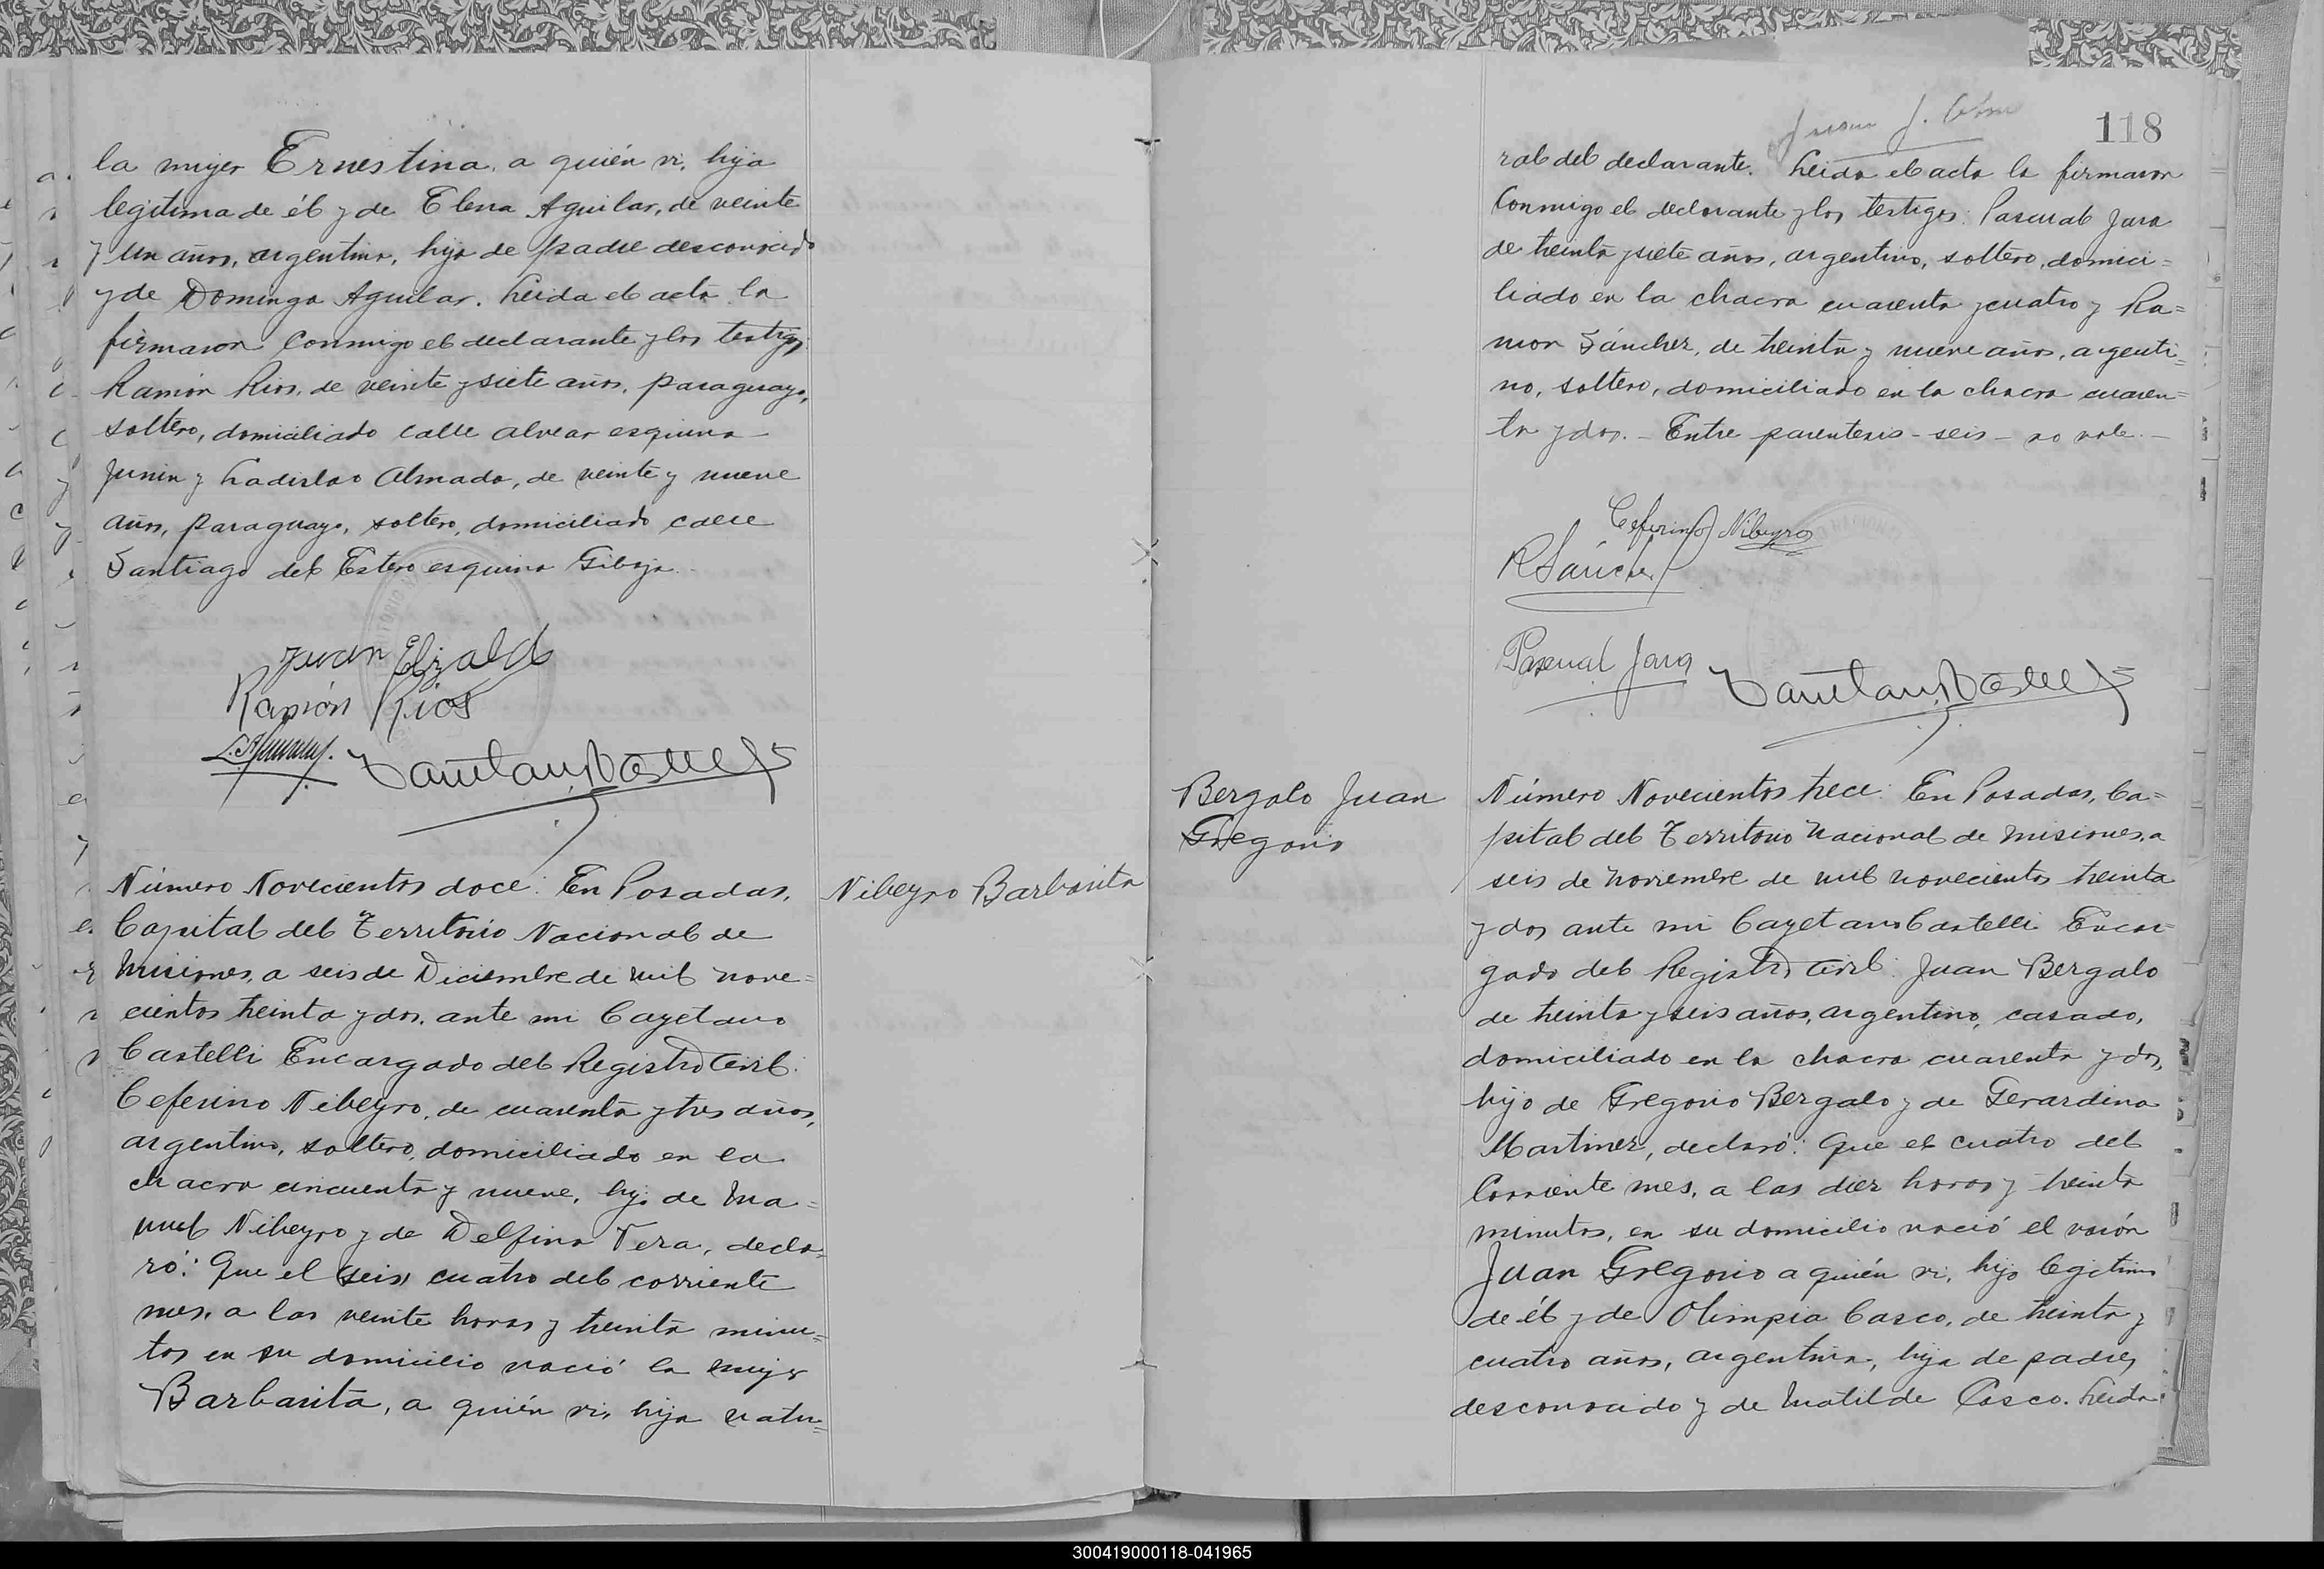 la mujer Ernestina, a quién vi, hija
legitima de él y de Elena Aguilar, de veinte
y un años, argentina, hija de padre desconocido
y de Dominga Aguilar. Leida el acta la
firmaron conmigo el declarante y los testigos:
Ramón Rios, de veinte y siete años, paraguayo,
soltero, domiciliado calle Alvear esquina
Junin y Ladislao Almada, de veinte y nueve
años, paraguayo, soltero, domiciliado calle
Santiago del Estero esquina Gibaja.
Juan Elizalde
Ramón Rios
Número Novecientos doce: En Posadas,
Capital del Territorio Nacional de
Misiones, a seis de Diciembre de mil nove=
cientos treinta y dos, ante mi Cayetano
Castelli Encargado del Registro Civil:
Ceferino Nibeyro, de cuarenta y tres años,
argentino, soltero, domiciliado en la
chacra cincuenta y nueve, hijo de Ma=
nuel Nibeyro y de Delfina Vera, decla=
ró: Que el (seis) cuatro del corriente
mes, a las veinte horas y treinta minu=
tos en su domicilio nació la mujer
Barbarita, a quién vi, hija natu=
Nibeyro Barbarita
118
ral del declarante. Leida el acta la firmaron
conmigo el declarante y los testigos: Pascual Jara
de treinta y siete años, argentino, soltero, domici=
liado en la chacra cuarenta y cuatro y Ra=
mon Sánchez, de treinta y nueve años, argenti=
no, soltero, domiciliado en la chacra cuaren=
ta y dos. - Entre parentesis - seis - no vale. -
Ceferino Nibeyro
R Sánchez
Pascual Jara
Bergalo Juan
Gregorio
Número Novecientos trece: En Posadas, Ca=
pital del Territorio Nacional de Misiones, a
seis de Noviembre de mil novecientos treinta
y dos ante mi Cayetano Castelli Encar=
gado del Registro Civil: Juan Bergalo
de treinta y seis años, argentino, casado,
domiciliado en la chacra cuarenta y dos,
hijo de Gregorio Bergalo y de Gerardina
Martinez, declaró: Que el cuatro del
corriente mes, a las diez horas y treinta
minutos, en su domicilio nació el varón
Juan Gregorio a quién vi, hijo legitimo
de él y de Olimpia Casco, de treinta y
cuatro años, argentina, hija de padre
desconocido y de Matilde Casco. Leida
300419000118-041965